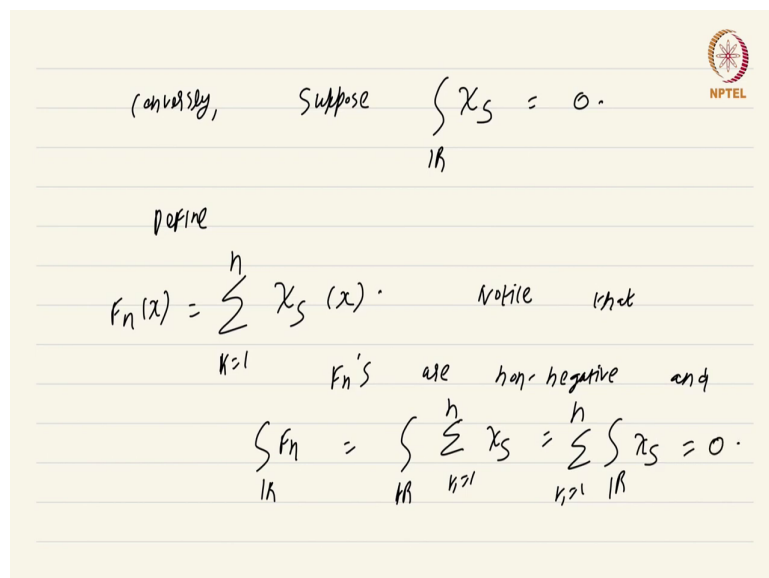 NPTEL
Conversly, Suppose ∫_ℝ χ_S = 0.
Define
F_n(x) = ∑_{k=1}^{n} χ_S(x). Notice that
F_n's are non-negative and
∫_ℝ F_n = ∫_ℝ ∑_{k=1}^{n} χ_S = ∑_{k=1}^{n} ∫_ℝ χ_S = 0.